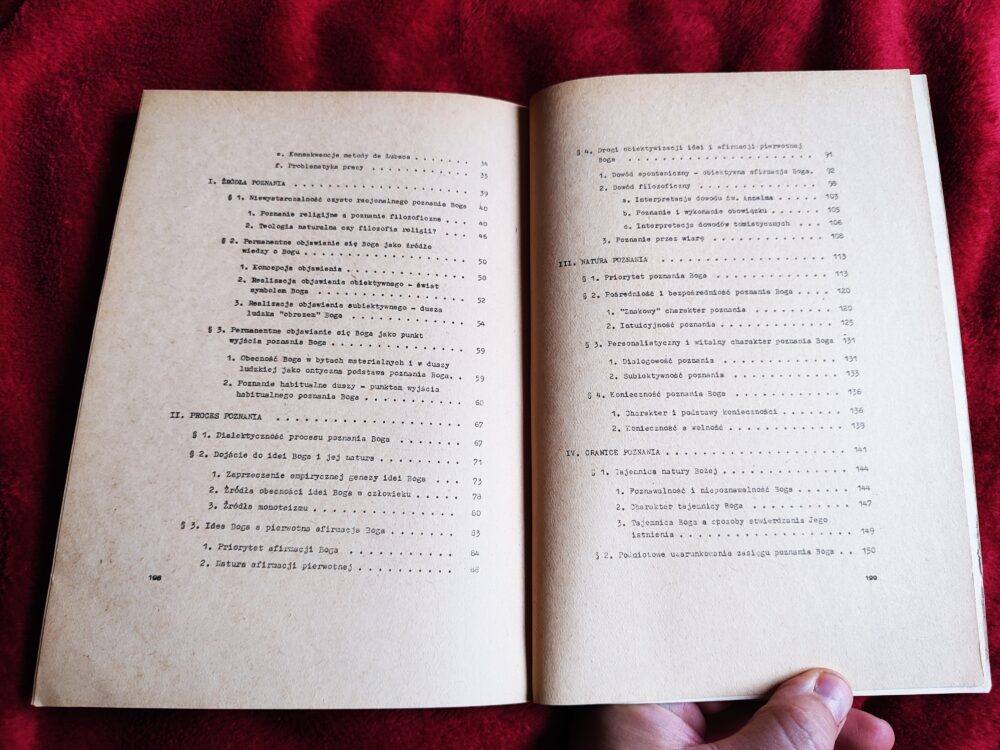 e. Konsekwencje metody de Lubaca . . . . . . . 34
f. Problematyka pracy . . . . . . . . . . . 35
I. ŹRÓDŁA POZNANIA . . . . . . . . . . . . . . . . . . 39
§ 1. Niewystarczalność czysto racjonalnego poznania Boga 40
1. Poznanie religijne a poznanie filozoficzne . . . 40
2. Teologia naturalna czy filozofia religii? . . . . 46
§ 2. Permanentne objawianie się Boga jako źródło
wiedzy o Bogu . . . . . . . . . . . . . . . . . 50
1. Koncepcja objawienia . . . . . . . . . . . . . 50
2. Realizacja objawienia obiektywnego - świat
symbolem Boga . . . . . . . . . . . . . . . . 52
3. Realizacja objawienia subiektywnego - dusza
ludzka "obrazem" Boga . . . . . . . . . . . . 54
§ 3. Permanentne objawianie się Boga jako punkt
wyjścia poznania Boga . . . . . . . . . . . . . . 59
1. Obecność Boga w bytach materialnych i w duszy
ludzkiej jako ontyczna podstawa poznania Boga. . 59
2. Poznanie habitualne duszy - punktem wyjścia
habitualnego poznania Boga . . . . . . . . . . 60
II. PROCES POZNANIA . . . . . . . . . . . . . . . . . . 67
§ 1. Dialektyczność procesu poznania Boga . . . . . . . 67
§ 2. Dojście do idei Boga i jej natura . . . . . . . . 71
1. Zaprzeczenie empirycznej genezy idei Boga . . . 73
2. Źródła obecności idei Boga w człowieku . . . . . 78
3. Źródła monoteizmu . . . . . . . . . . . . . . 80
§ 3. Idea Boga a pierwotna afirmacja Boga . . . . . . . 83
1. Priorytet afirmacji Boga . . . . . . . . . . . 84
2. Natura afirmacji pierwotnej . . . . . . . . . . 88
198
§ 4. Drogi obiektywizacji idei i afirmacji pierwotnej
Boga . . . . . . . . . . . . . . . . . . . . . 91
1. Dowód spontaniczny - obiektywna afirmacja Boga. 92
2. Dowód filozoficzny . . . . . . . . . . . . . 98
a. Interpretacja dowodu św. Anzelma . . . . . 103
b. Poznanie i wykonanie obowiązku . . . . . . 105
c. Interpretacja dowodów tomistycznych . . . . 106
3. Poznanie przez wiarę . . . . . . . . . . . . 108
III. NATURA POZNANIA . . . . . . . . . . . . . . . . . 113
§ 1. Priorytet poznania Boga . . . . . . . . . . . . 113
§ 2. Pośredniość i bezpośredniość poznania Boga . . . . 120
1. "Znakowy" charakter poznania . . . . . . . . . 120
2. Intuicyjność poznania . . . . . . . . . . . . 125
§ 3. Personalistyczny i witalny charakter poznania Boga 131
1. Dialogowość poznania . . . . . . . . . . . . 131
2. Subiektywność poznania . . . . . . . . . . . 133
§ 4. Konieczność poznania Boga . . . . . . . . . . . 136
1. Charakter i podstawy konieczności . . . . . . . 136
2. Konieczność a wolność . . . . . . . . . . . . 139
IV. GRANICE POZNANIA . . . . . . . . . . . . . . . . . 141
§ 1. Tajemnica natury Bożej . . . . . . . . . . . . 144
1. Poznawalność i niepoznawalność Boga . . . . . . 144
2. Charakter tajemnicy Boga . . . . . . . . . . . 147
3. Tajemnica Boga a sposoby stwierdzania Jego
istnienia . . . . . . . . . . . . . . . . . . 149
§ 2. Podmiotowe uwarunkowania zasięgu poznania Boga . . 150
199